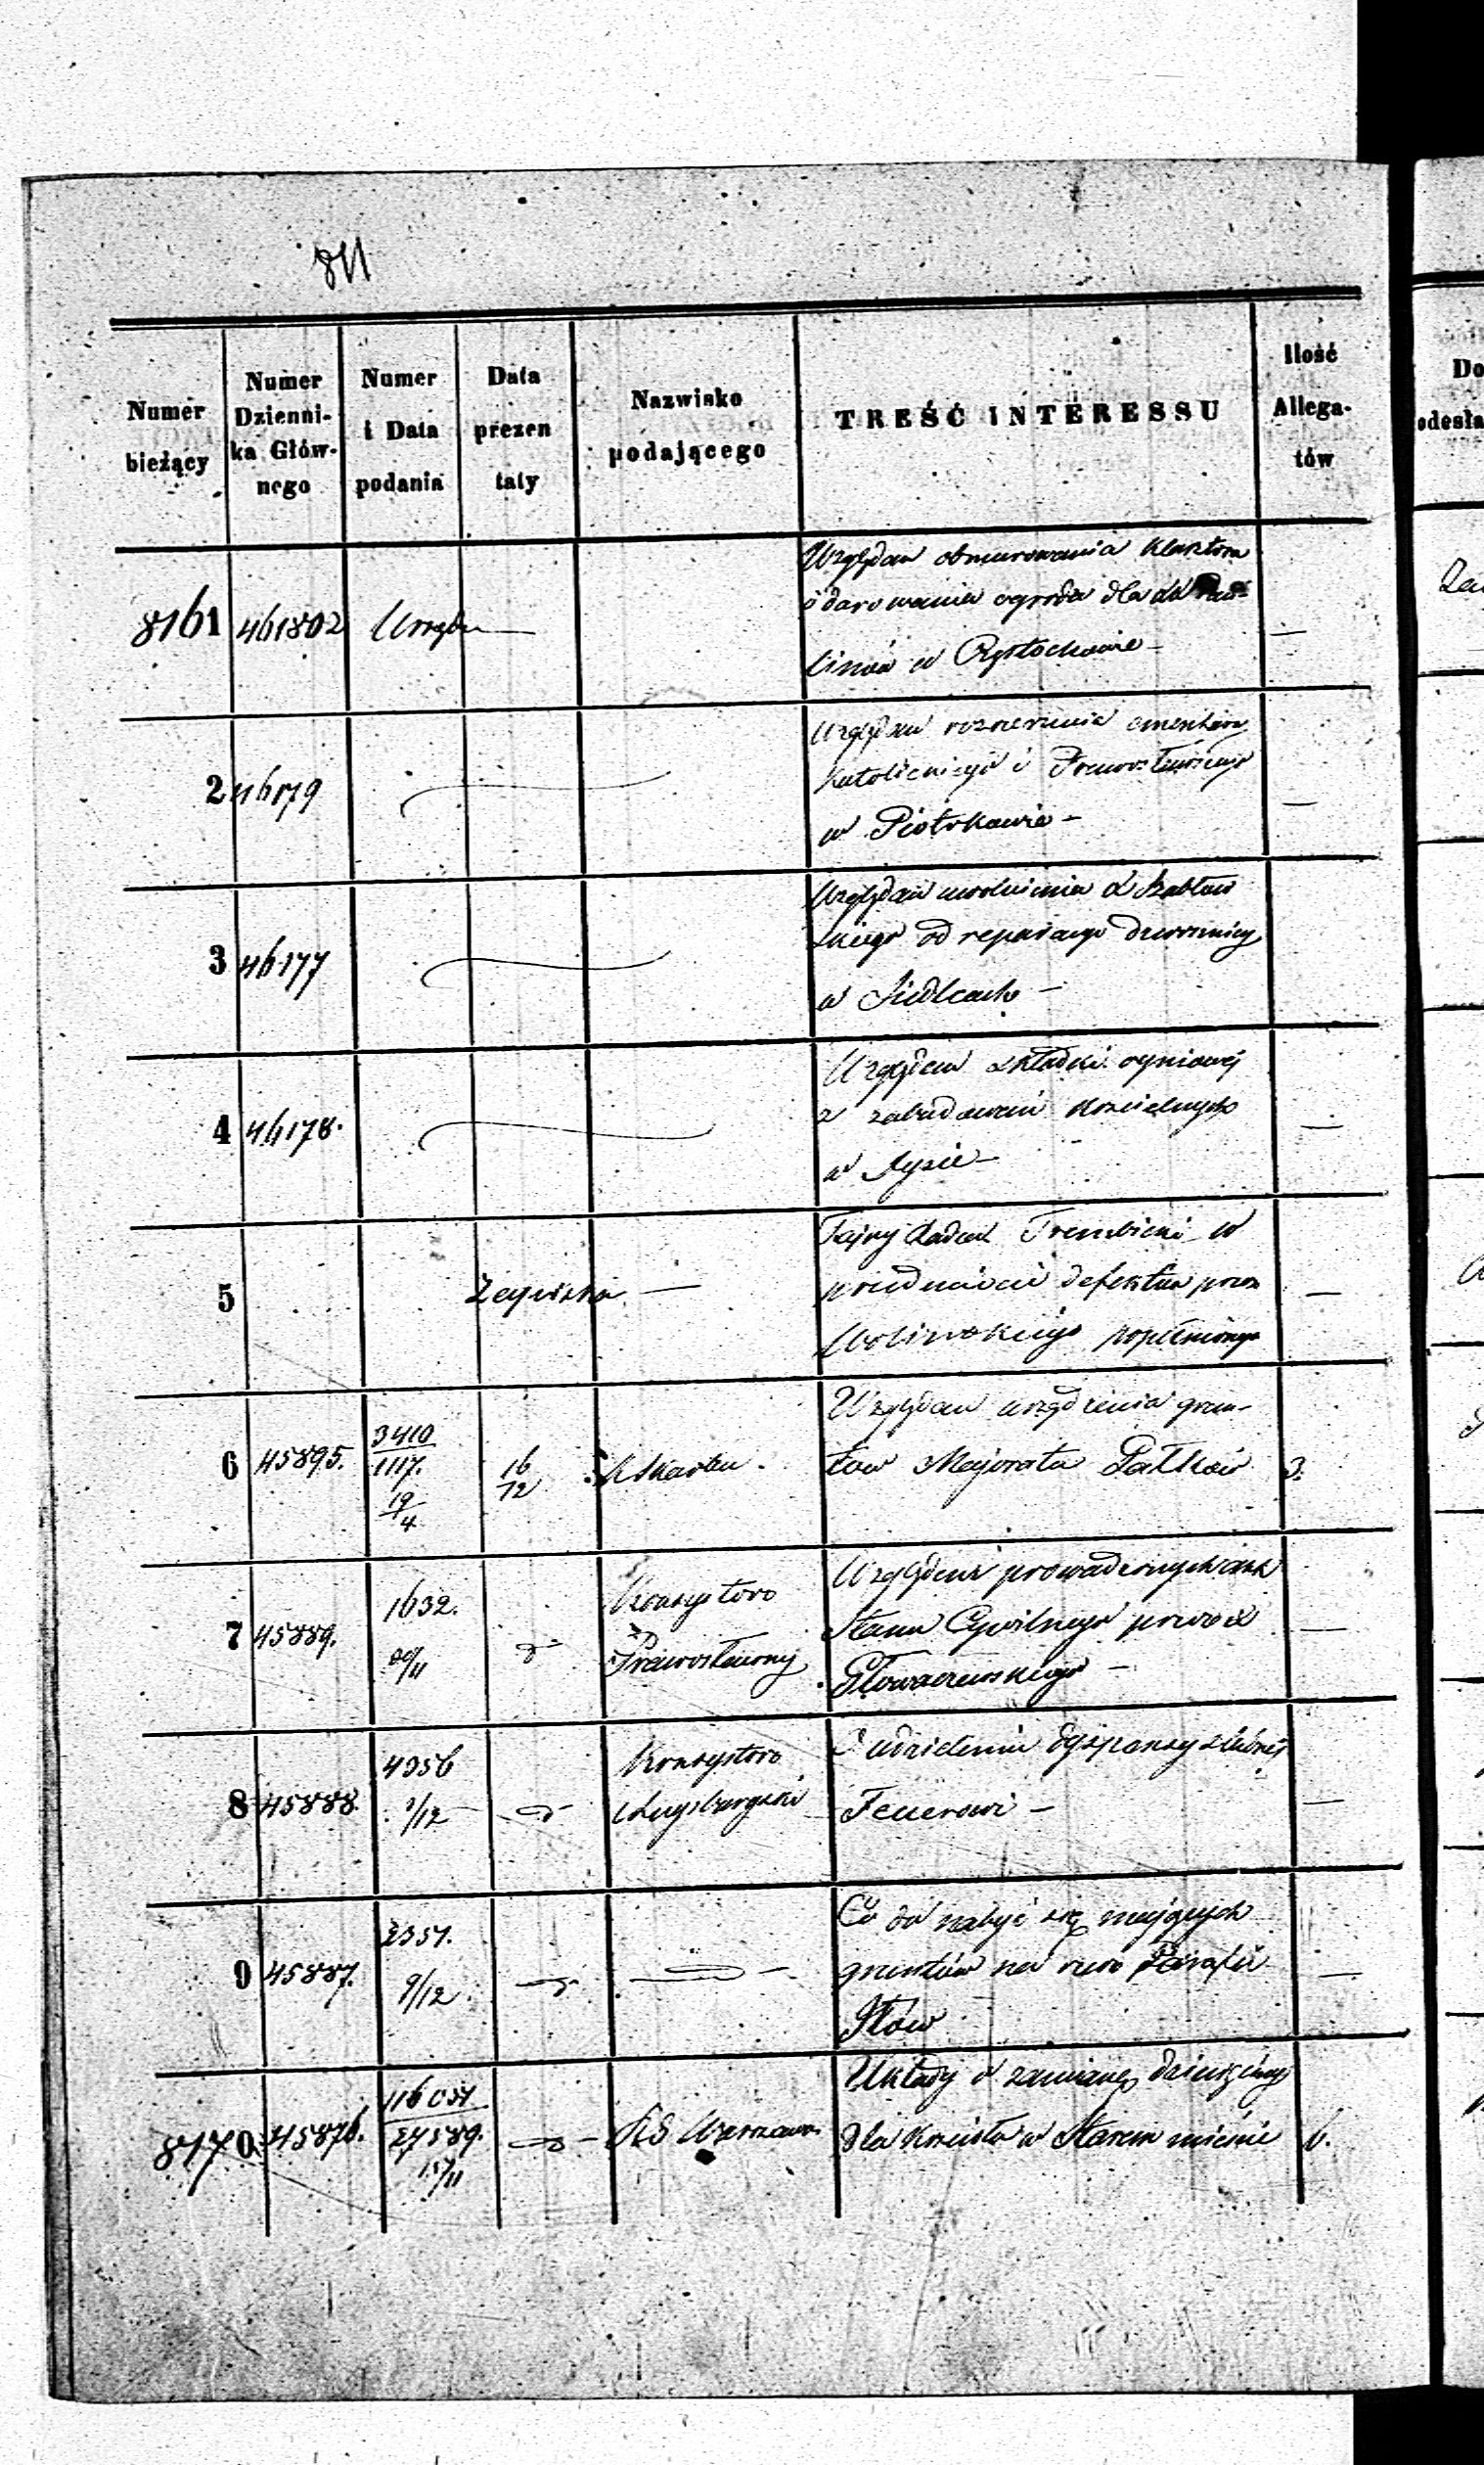 811
Numer bieżący
Numer Dzienni-
ka Głów-
nego
Numer i Data podania
Data prezen
taty
Nazwisko podającego
TREŚĆ INTERESSU
Ilość Allega-
tów
8161 461802 Urzędu —
Względem obmurowania klasztoru
i darowania ogrodu dla XX Pau-
linów w Częstochowie —
2 46179
Względem rozszerzenia cmentarza
Katolickiego i Prawosławnego
w Piotrkowie —
3 46177
Względem uwolnienia X
skiego od reparacyi dzwonnicy
w Siedlcach —
4 46178.
Względem składki ogniowej
z zabudowań kościelnych
w —
5
Tajny Radca Trembicki w
przedmiocie defektu przez
Wolińskiego popełnionego
6 45895. 3410
1117.
19/4
16/12
K Skarbu.
Względem urządzenia grun-
tów Majoratu Patków 3.
7 45889. 1632.
Konsystorz
Prawosławny
Względem prowadzonych akt
Stanu Cywilnego przez X
8 45888. 4356
/12
Konsystorz
Augsburgski
O udzieleniu dyspensy ślubnej
Feuerowi —
9 45887. 2351.
9/12
Co do nabyć się mających
gruntów na rzecz Parafii
Iłów
8170 45876. 116051
27589.
15/11
RG Warszaw.
Układy o zamianę dziesięciny
dla Kościoła w Starem mieście 6.